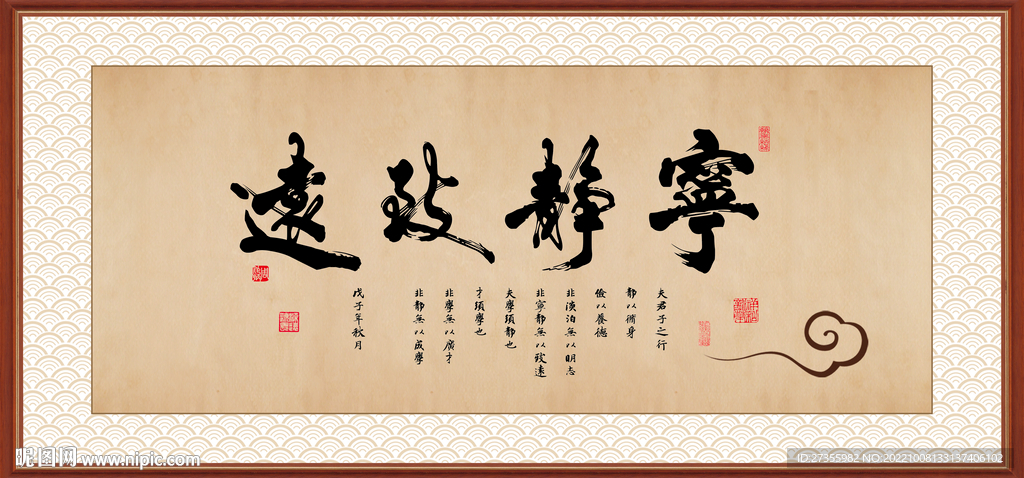 寧靜致遠
夫君子之行
靜以脩身
儉以養德
非淡泊無以明志
非寧靜無以致遠
夫學須靜也
才須學也
非學無以廣才
非靜無以成學
戊子年秋月
昵图网 www.nipic.com
ID:27355982 NO:20221008133137406102